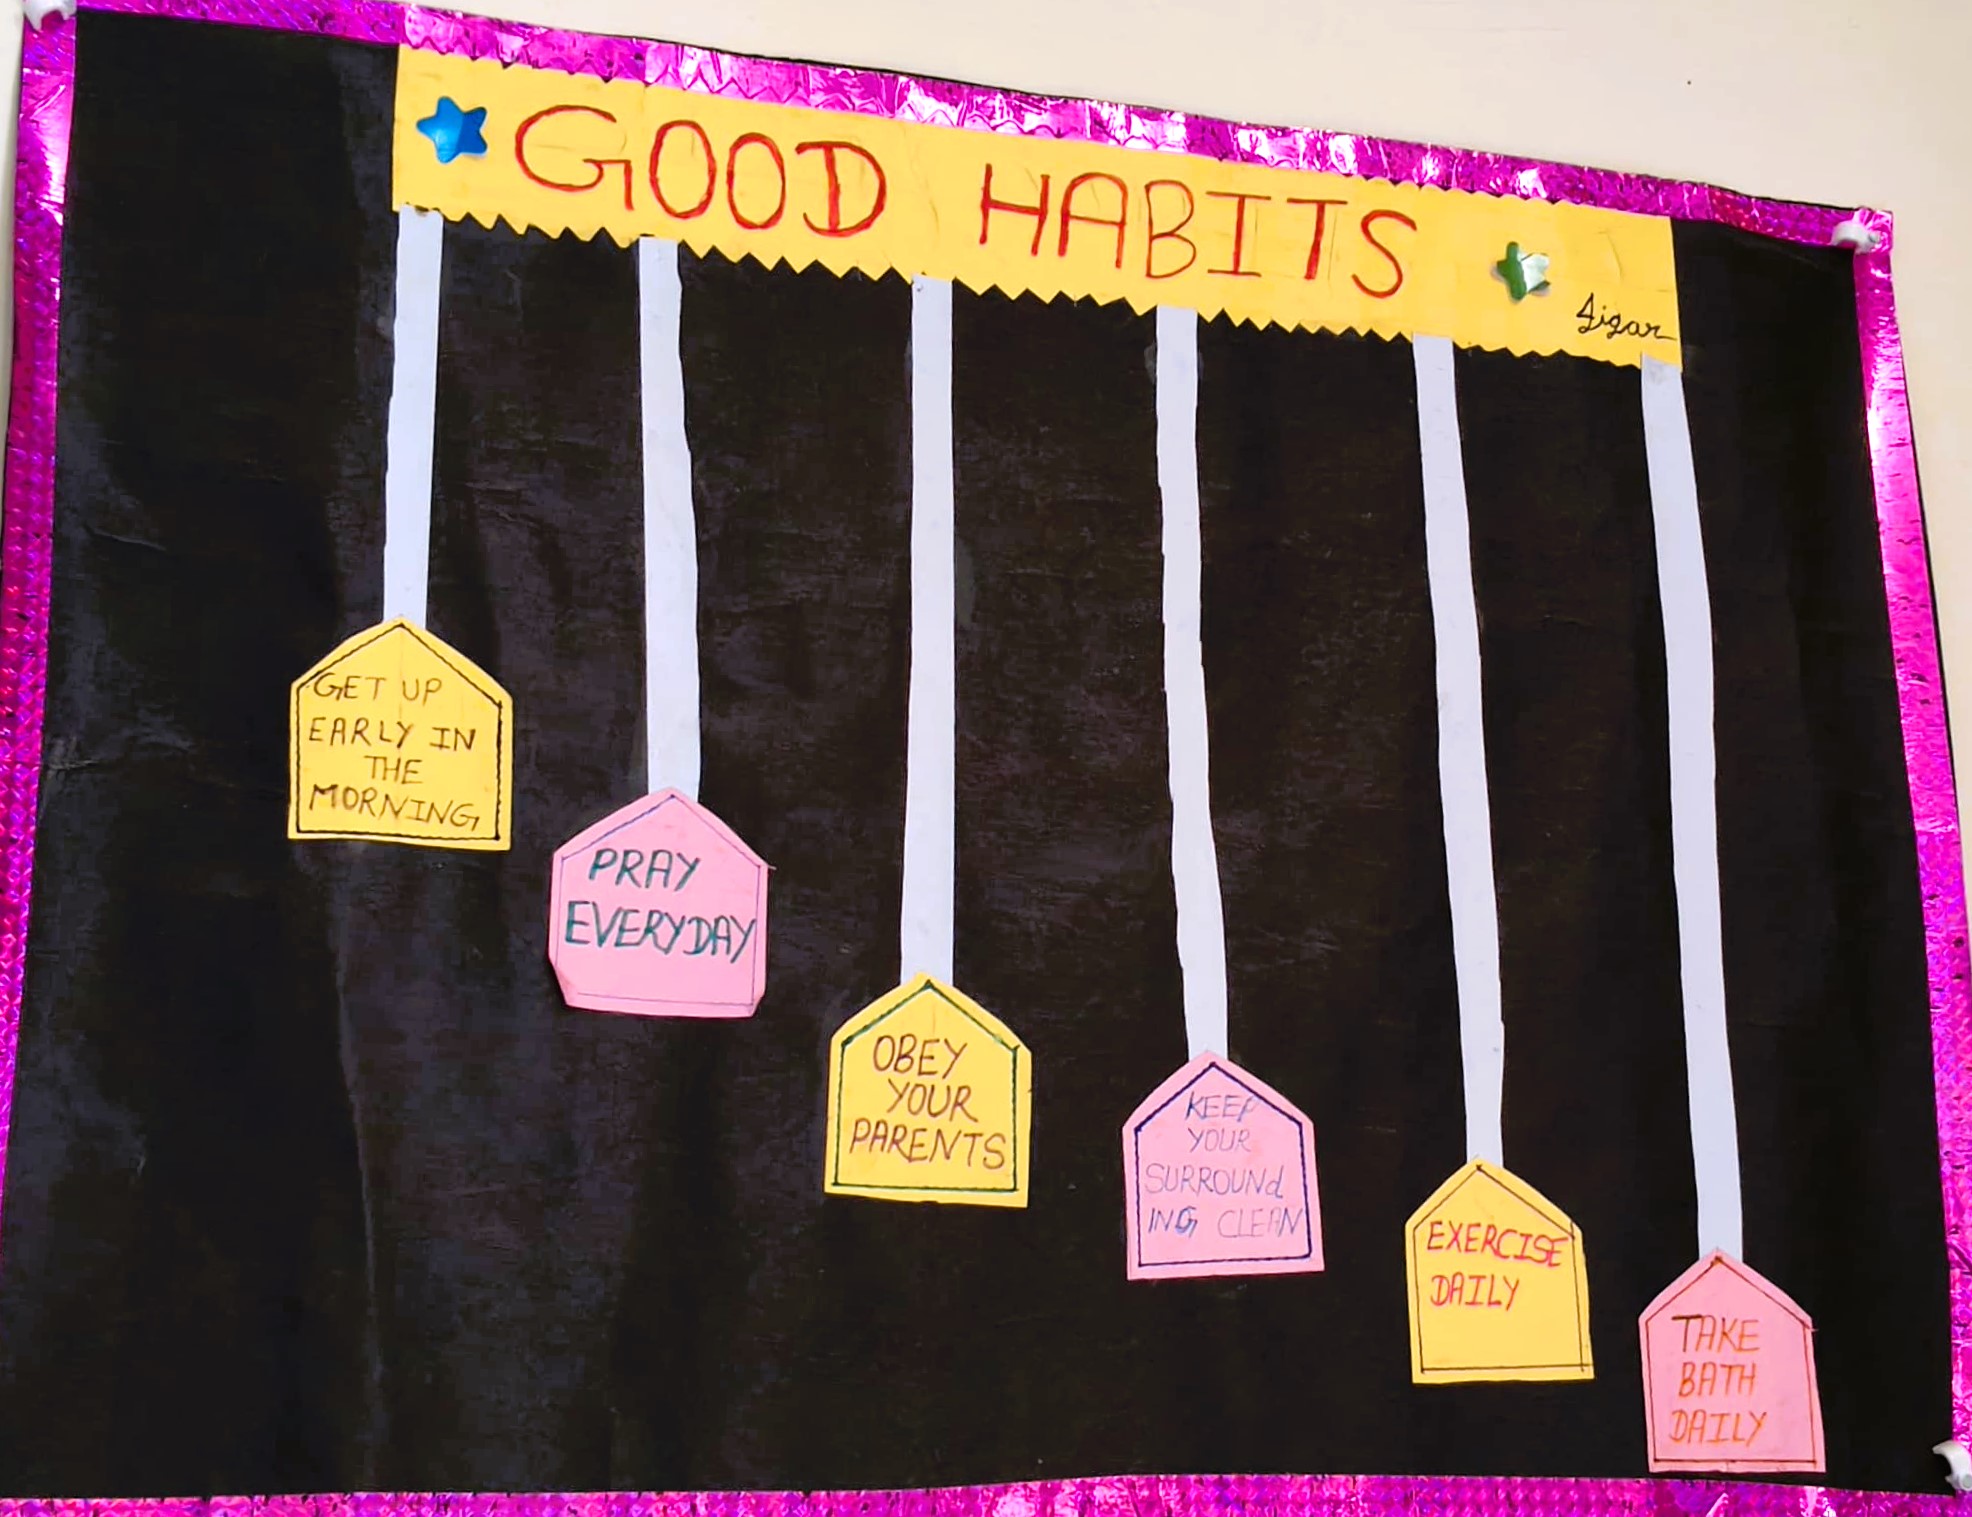 GOOD HABITS
Jigar
GET UP
EARLY IN
THE
MORNING
PRAY
EVERYDAY
OBEY
YOUR
PARENTS
KEEP
YOUR
SURROUNd
ING CLEAN
EXERCISE
DAILY
TAKE
BATH
DAILY